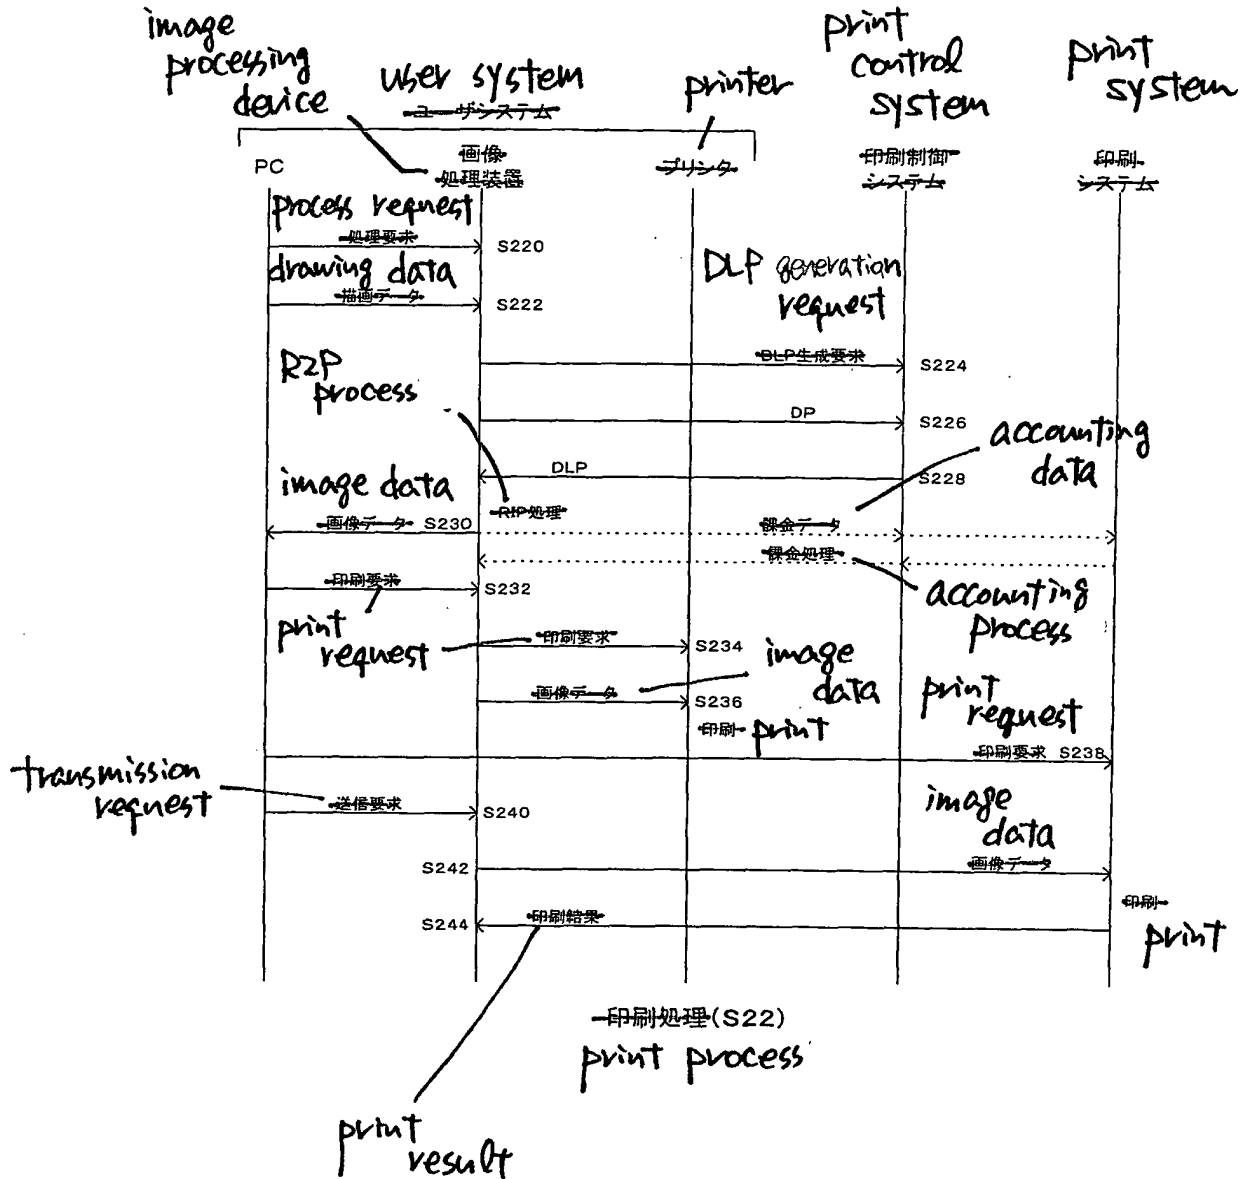 image
processing
device
user system
ユーザシステム
printer
print
control
system
print
system
PC
画像
処理装置
プリンタ
印刷制御
システム
印刷
システム
process request
処理要求
S220
drawing data
描画データ
S222
DLP generation
request
DLP生成要求
S224
R2P
process
DP
S226
accounting
data
DLP
S228
image data
RIP処理
画像データ S230
課金データ
課金処理
印刷要求
S232
accounting
process
print
request
印刷要求
S234
image
data
画像データ
S236
print
request
印刷
print
印刷要求 S238
transmission
request
送信要求
S240
image
data
S242
画像データ
印刷
print
S244
印刷結果
印刷処理(S22)
print process
print
result